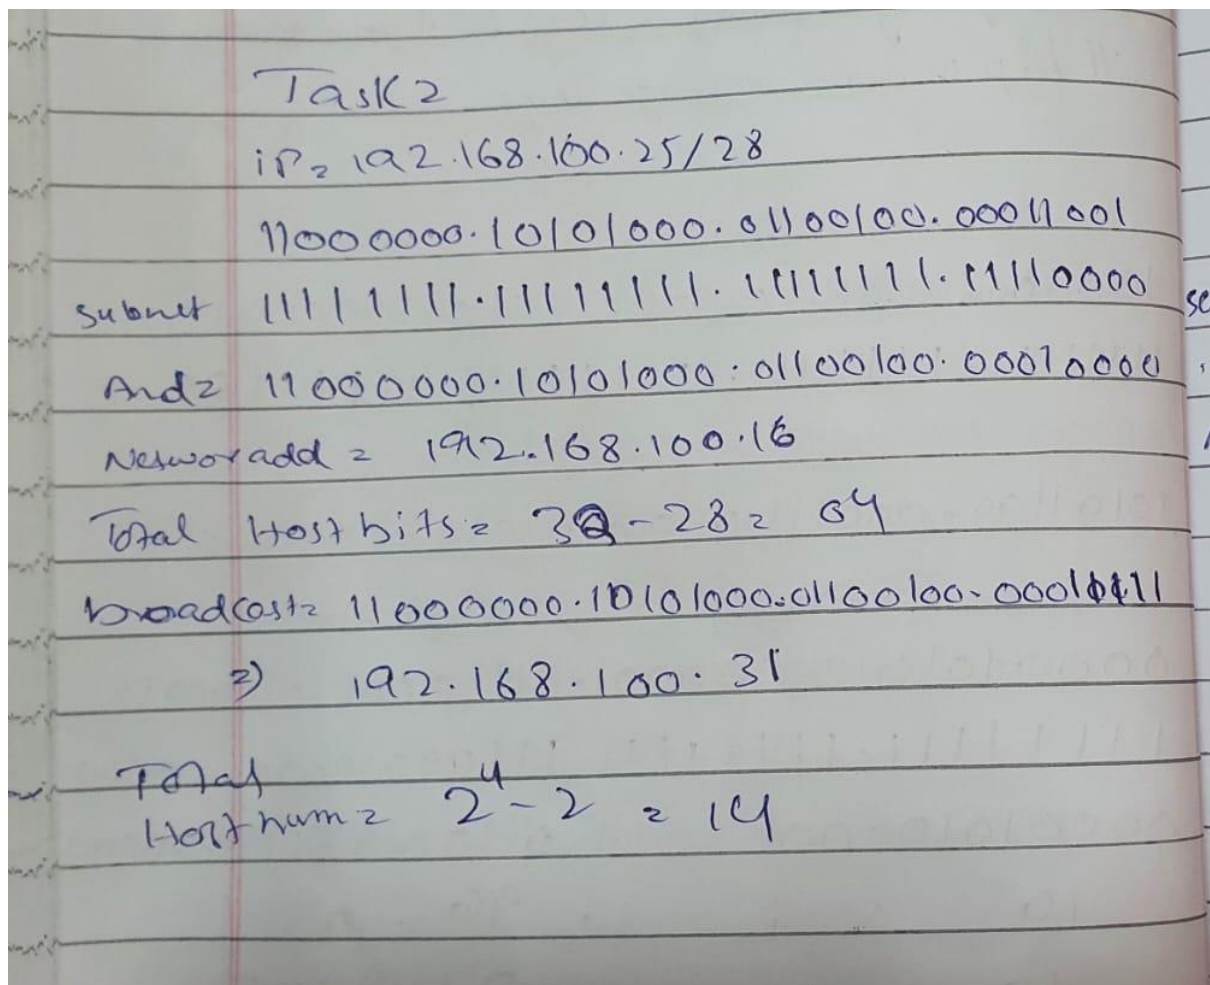 Task 2
iP = 192.168.100.25/28
11000000.10101000.01100100.00011001
subnet 11111111.11111111.11111111.11110000
And = 11000000.10101000.01100100.00010000
Networ add = 192.168.100.16
Total Host bits = 32 - 28 = 04
broadcast = 11000000.10101000.01100100.00011111
=) 192.168.100.31
Total
Host num = 2⁴ - 2 = 14